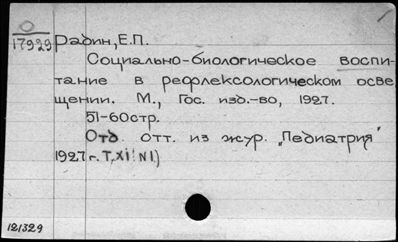 0
17929 Рабин, Е.П.
Социально-биологическое воспи-
тание в рефлексологическом осве
щении. М., Гос. изд.-во, 1927.
51-60стр.
Отд. отт. из жур. „Педиатрия"
1927 г. Т, XI: N1)
121329